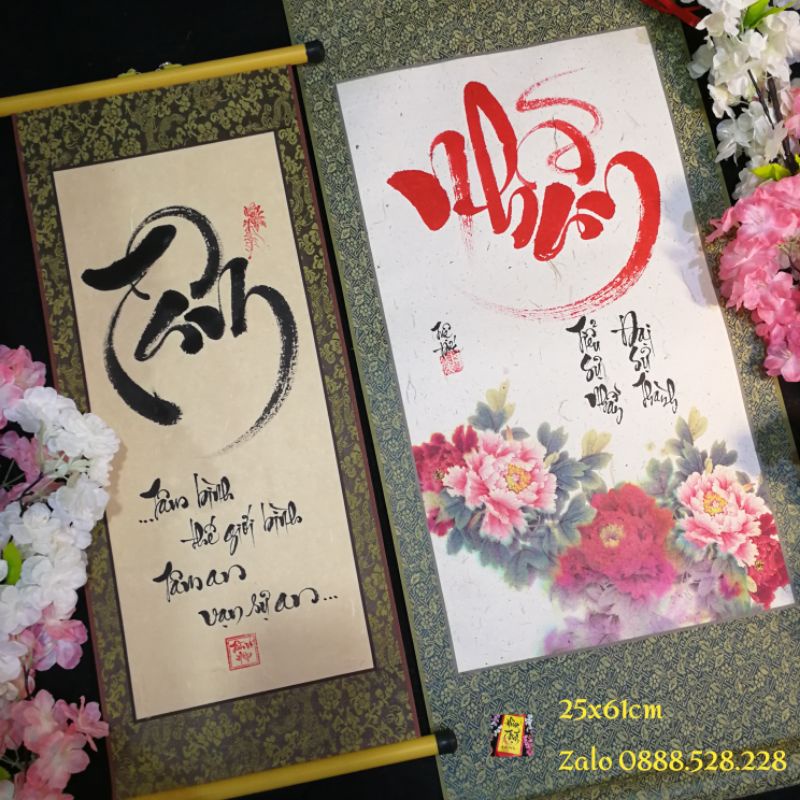 ...Tâm bình
thế giới bình
Tâm an
vạn sự an...
Nhẫn
Tiểu
sự
nhẫn
Đại
sự
thành
25x61cm
Zalo 0888.528.228